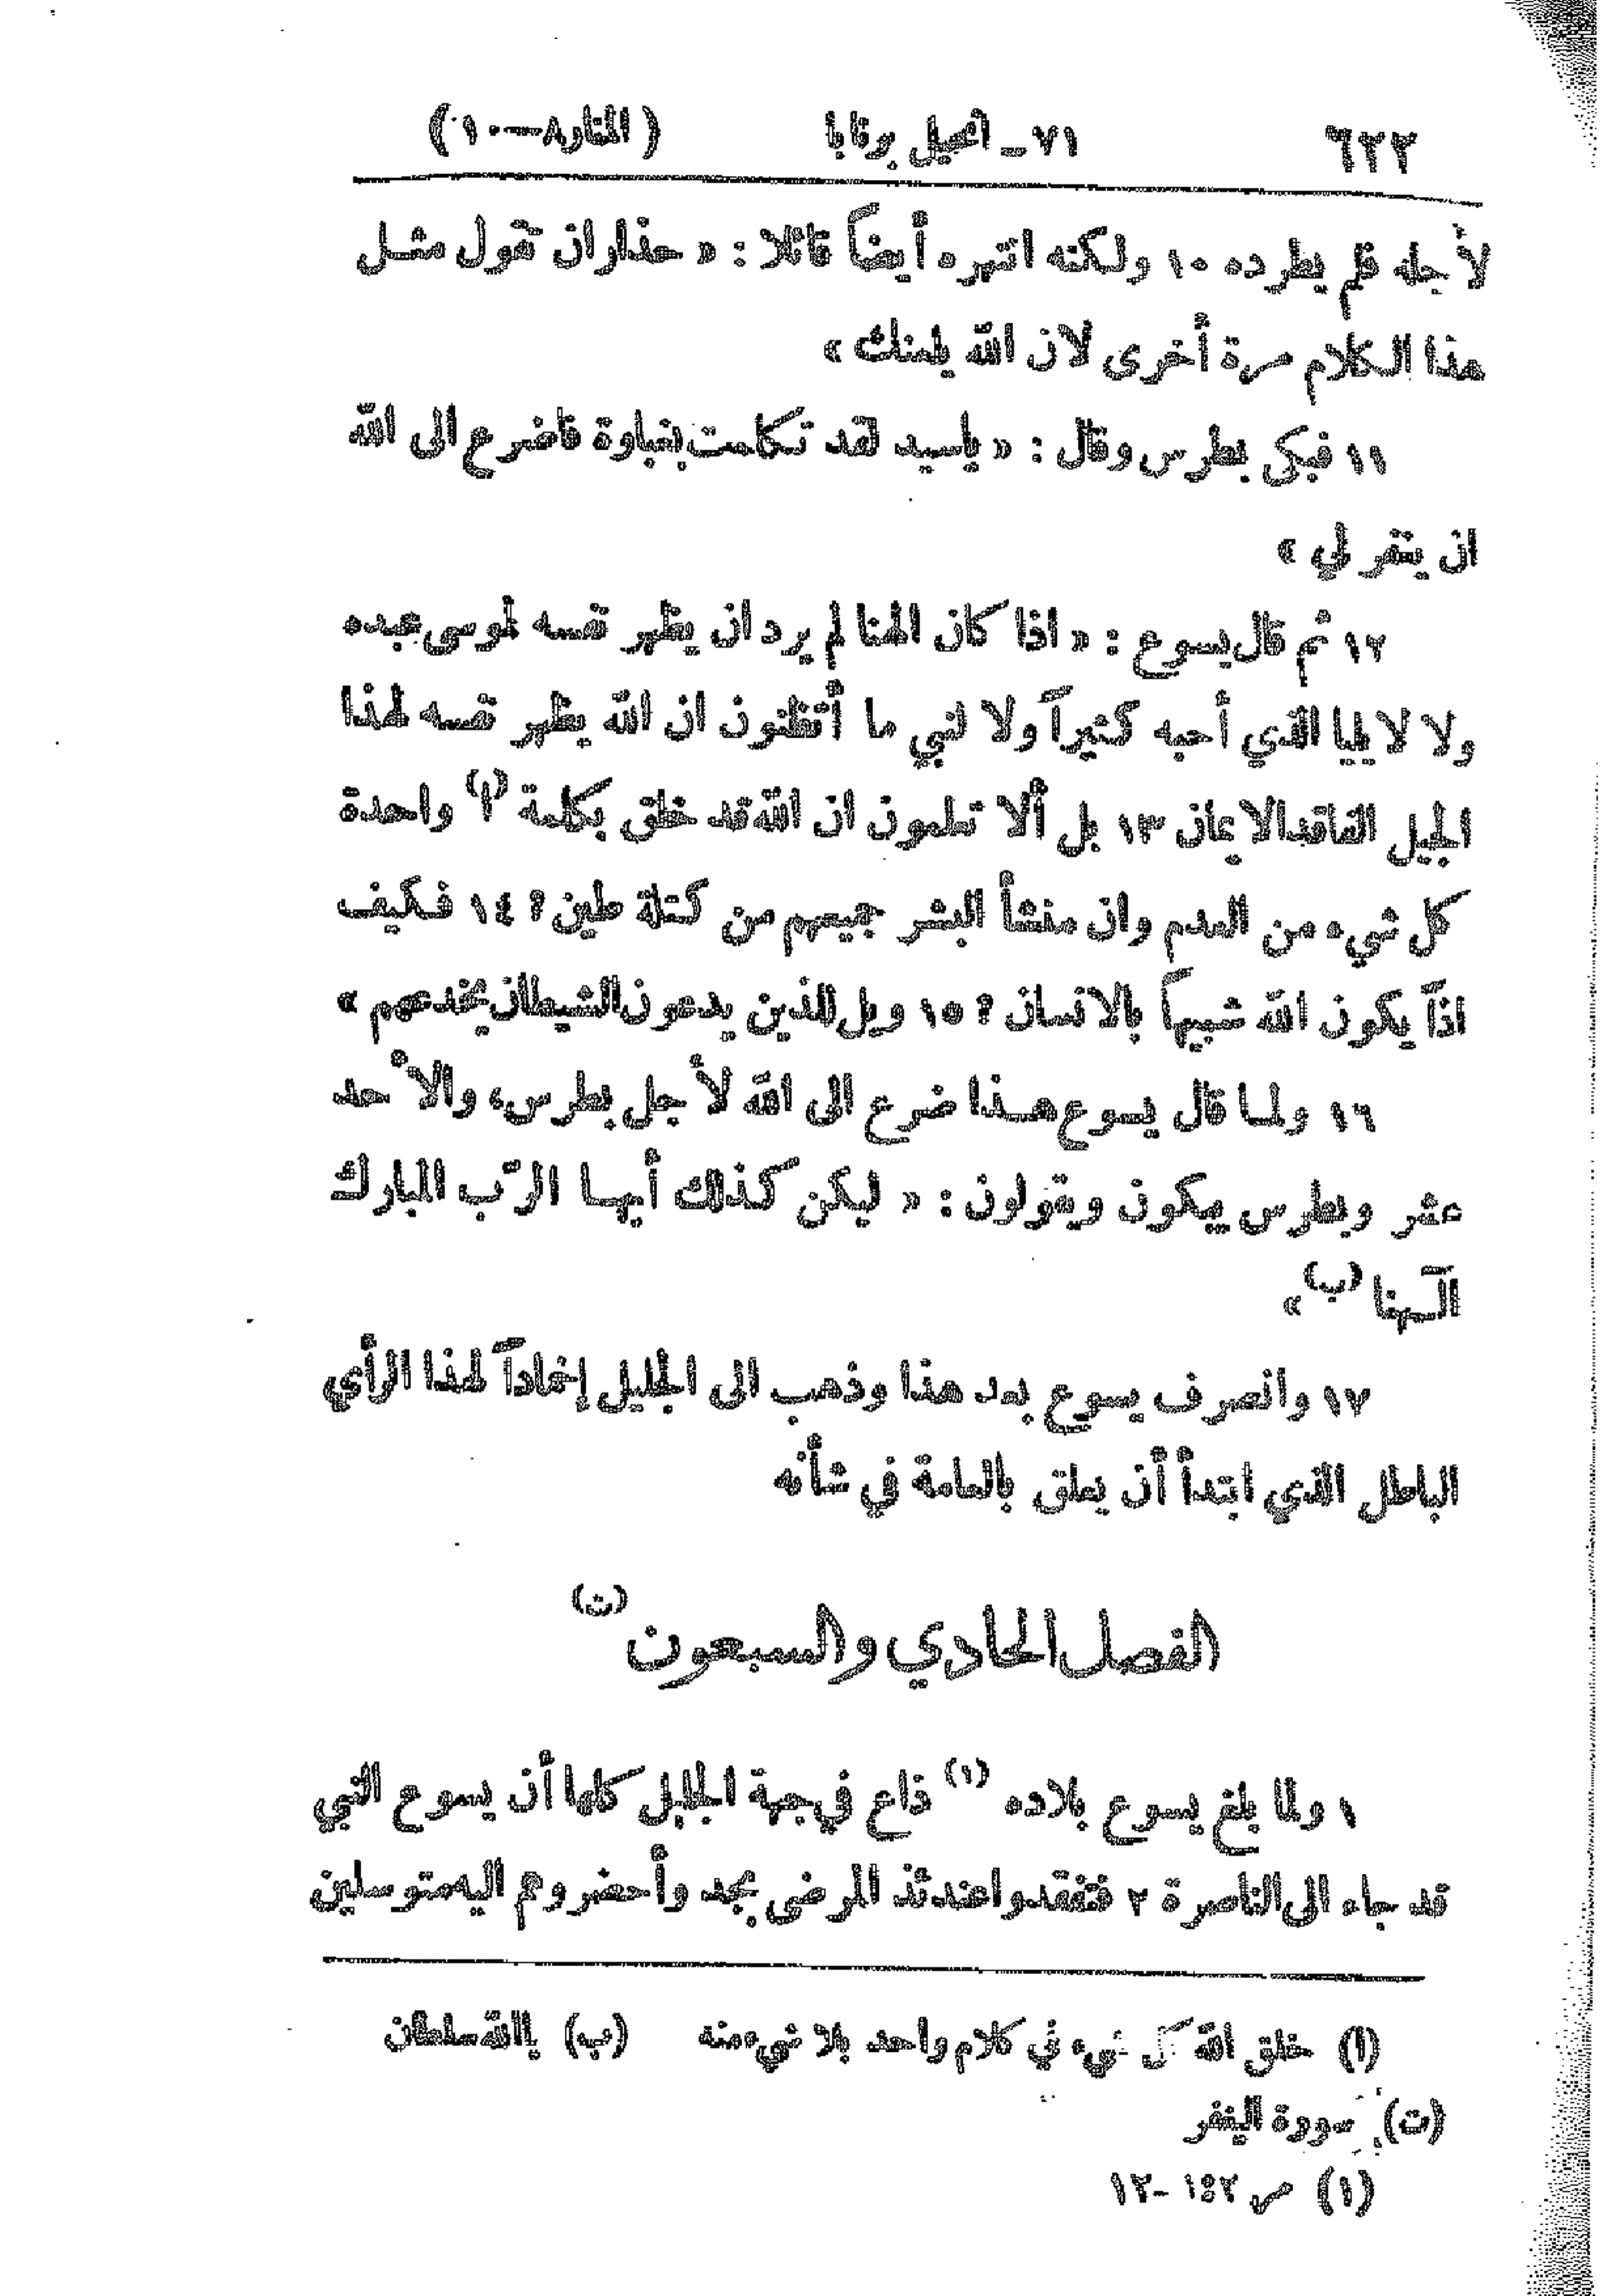 ٦٢٢ ٧١ ــ انجيل برنابا ( المنار ٨ــ١٠ )
لأجله فلم يطرده ١٠ ولكنه انتهره أيضاً قائلا : « حذار ان تقول مثــل
هذا الــكلام مرة أخرى لان الله يلعنك »
١١ فبكى بطرس وقال : « ياسيد لقد تــكلمت بغباوة فاضرع الى الله
ان يغفر لي »
١٢ ثم قال يسوع : « اذا كان الهنا لم يرد ان يظهر نفسه لموسى عبده
ولا لا يليا الذي أحبه كثيراً ولا لنبي ما أتظنون ان الله يظهر نفسه لهذا
الجيل الفاقد الايمان ١٣ بل ألا تعلمون ان الله قد خلق بكلمة (أ) واحدة
كل شيء من العدم وان منشأ البشر جميعهم من كتلة طين ؟ ١٤ فــكيف
اذاً يكون الله شبيهاً بالانسان ؟ ١٥ ويل للذين يدعون الشيطان يخدعهم »
١٦ ولمــا قال يسوع هــذا ضرع الى الله لأجل بطرس، والأحد
عشر وبطرس يبكون ويقولون : « ليكن كذلك أيهــا الرّب المبارك
آلــهنا (ب) »
١٧ وانصرف يسوع بعد هذا وذهب الى الجليل إخماداً لهذا الرأي
الباطل الذي ابتدأ أن يعلق بالعامة في شأنه
الفصل الحادي والسبعون (ت)
١ ولما بلغ يسوع بلاده (١) ذاع في جهة الجليل كلها أن يسوع النبي
قد جاء الى الناصرة ٢ فتفقدوا عندئذ المرضى بجد وأحضروهم اليه متوسلين
(أ) خلق الله كل شيء في كلام واحد بلا شيء منه (ب) ياالله سلطان
(ت) سورة اليغفر
(١) مر ٢:١-١٢